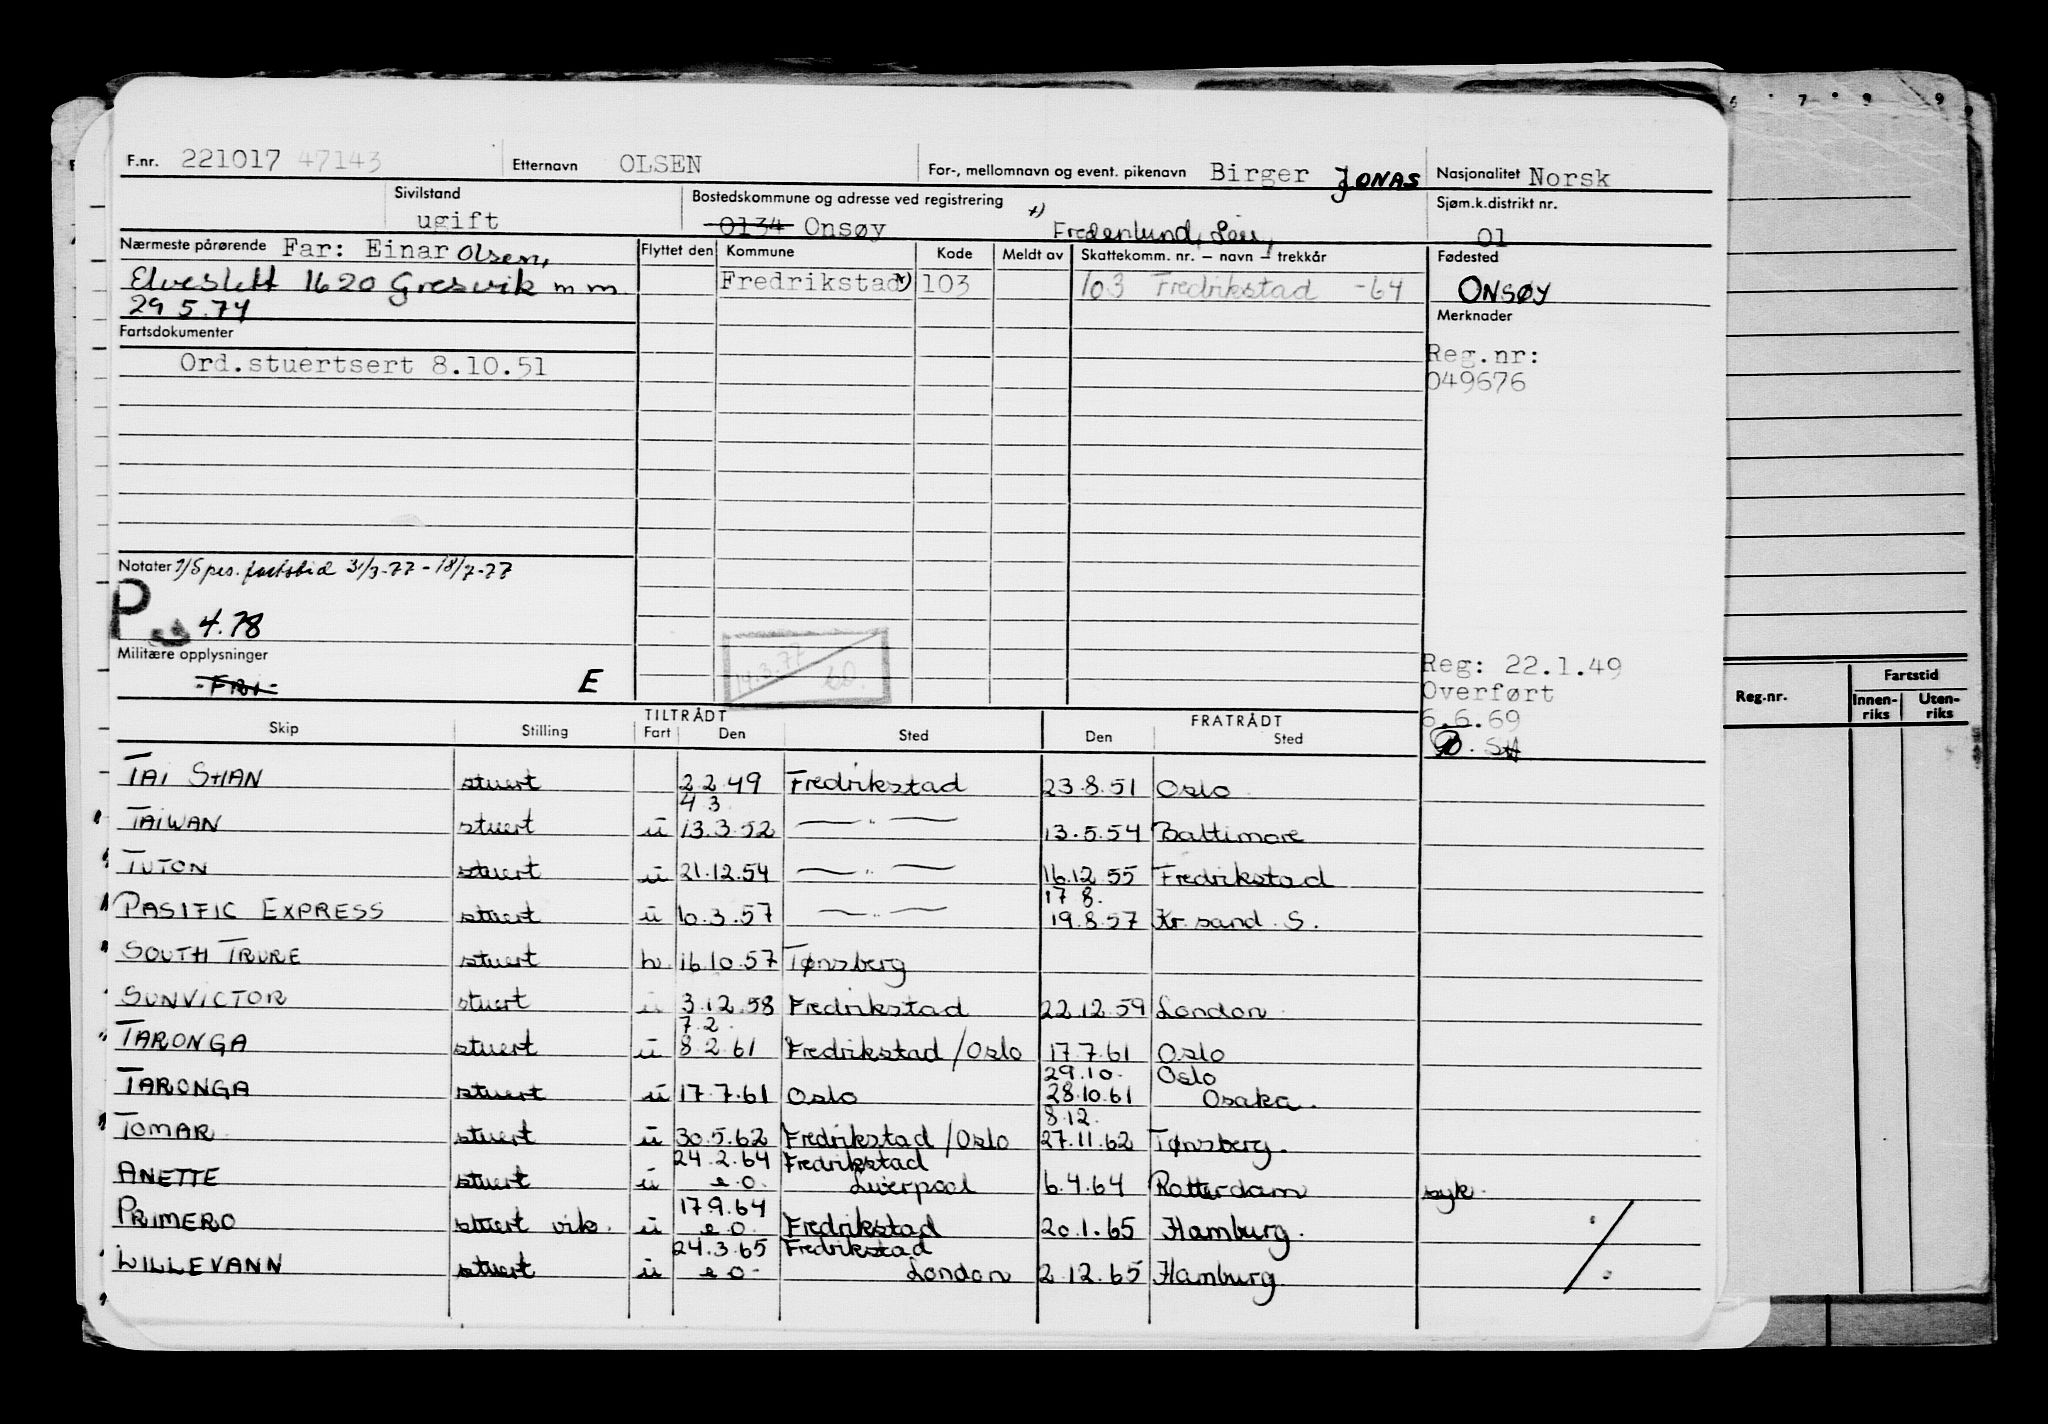 F.nr. 221017 47143 Etternavn OLSEN For-, mellomnavn og event. pikenavn Birger JONAS Nasjonalitet Norsk
Sivilstand ugift Bostedskommune og adresse ved registrering 0134 Onsøy x) Fredenlund, Sjøm.k.distrikt nr. 01
Nærmeste pårørende Far: Einar Olsen, Flyttet den Kommune Kode Meldt av Skattekomm. nr. – navn – trekkår Fødested
Elveslett 1620 Gresvik m m Fredrikstad x) 103 103 Fredrikstad -64 ONSØY
29 5.74
Fartsdokumenter Merknader
Ord.stuertsert 8.10.51 Reg.nr:
049676
Notater Spes. fartstid 31/3-77 - 18/7-77
P 4.78
Militære opplysninger 14.3.77 Reg: 22.1.49
-FRI- E Overført
6.6.69
TILTRÅDT FRATRÅDT
Skip Stilling Fart Den Sted Den Sted
TAI SHAN stuert 2 2 49 Fredrikstad 23.8.51 Oslo
4 3
TAIWAN stuert u 13.3.52 — " — 13.5.54 Baltimore
TUTON stuert u 21.12.54 — " — 16.12 55 Fredrikstad
17 8.
PASIFIC EXPRESS stuert u 10.3.57 — " — 19.8.57 Kr. sand. S.
SOUTH TRURE stuert h. 16.10.57 Tønsberg
SUNVICTOR stuert u 3.12.58 Fredrikstad 22.12.59 London
7.2.
TARONGA stuert u 8.2.61 Fredrikstad/Oslo 17.7.61 Oslo
29.10. Oslo
TARONGA stuert u 17.7.61 Oslo 28.10.61 Osaka.
8.12.
TOMAR stuert u 30.5.62 Fredrikstad/Oslo 27.11.62 Tønsberg.
24.2.64 Fredrikstad
ANETTE stuert u e.o. Liverpool 6.4.64 Rotterdam syk.
17.9.64
PRIMERO stuert vik. u e.o. Fredrikstad 20.1.65 Hamburg.
24.3.65 Fredrikstad
LILLEVANN stuert u e o- London 2.12.65 Hamburg
6 7 8 9
Reg.nr. Fartstid
Innen-riks Uten-riks